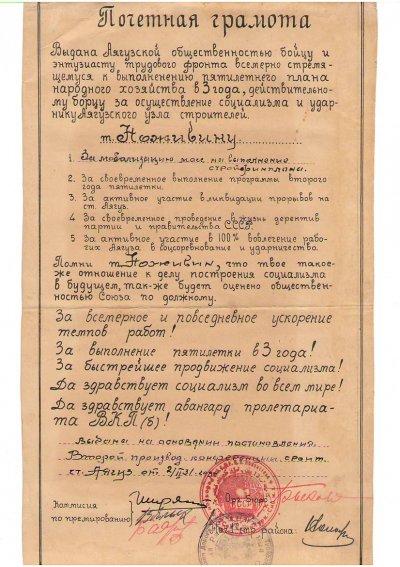 Почетная грамота
Выдана Аягузской общественностью бойцу и
энтузиасту трудового фронта всемерно стремя-
щемуся к выполенению пятилетнего плана
народного хозяйства в 3 года, действительно-
му борцу за осуществление социализма и удар-
нику Аягузского узла строителей.
т. Ноживину
1. За мобилизацию масс на выполнение
стройфинплана.
2. За своевременное выполнение программы второго
года пятилетки.
3. За активное участие в ликвидации прорывов на
ст. Аягуз.
4. За своевременное проведение в жизнь деректив
партии и правительства СССР.
5. За активное участие в 100% вовлечение рабо-
чих Аягуза в соцсоревнование и ударничество.
Помни т. Ноживин, что твое такое-
же отношение к делу построения социализма
в будущем, так-же будет оценено обществен-
ностью Союза по должному.
За всемерное и повседневное ускорение
темпов работ!
За выполнение пятилетки в 3 года!
За быстрейшее продвижение социализма!
Да здравствует социализм во всем мире!
Да здравствует авангард пролетариа-
та ВКП(б)!
Выдана на основании постановления
Второй производ. конференции строит.
ст. Аягуз от
Комиссия
по премированию
района: